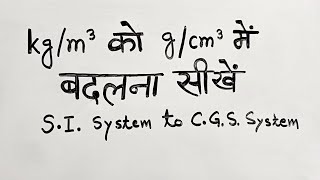 kg/m³ को g/cm³ में
बदलना सीखें
S.I. System to C.G.S. System